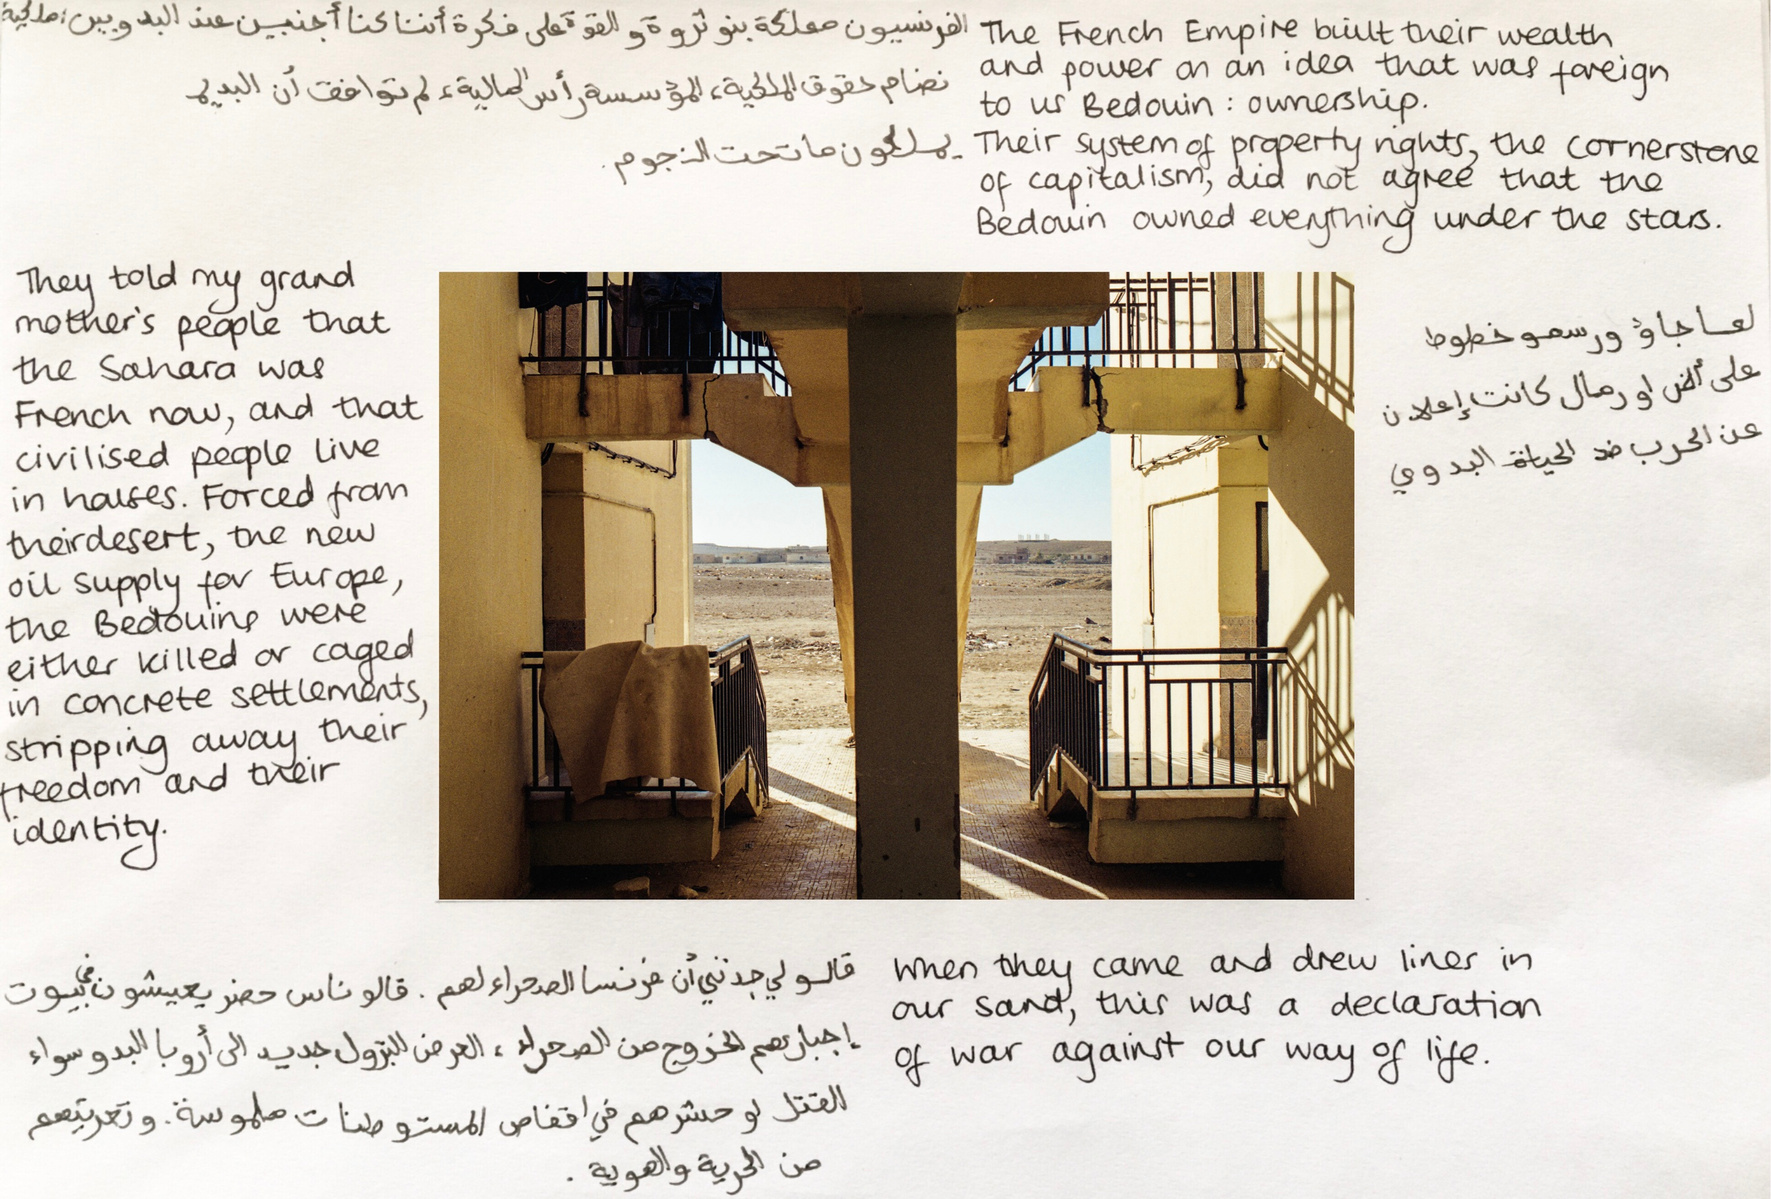 الفرنسيون مملكة بنو ثروة و القوة على فكرة أننا كنا أجنبين عند البدويين: ملكية
نضام حقوق الملكية، المؤسسة رأس المالية، لم توافقت أن البديم
يملكون ما تحت النجوم.
The French Empire built their wealth
and power on an idea that was foreign
to us Bedouin : ownership.
Their system of property rights, the cornerstone
of capitalism, did not agree that the
Bedouin owned everything under the stars.
They told my grand
mother's people that
the Sahara was
French now, and that
civilised people live
in houses. Forced from
their desert, the new
oil supply for Europe,
the Bedouins were
either killed or caged
in concrete settlements,
stripping away their
freedom and their
identity.
لما جاؤ ورسمو خطوط
على او رمال كانت إعلان
عن الحرب ضد الحياة البدوي
قالو لي جدتي أن فرنسا الصحراء لهم. قالو ناس حضر يعيشون في بيوت
إجبارهم الخروج من الصحراء، العرض البترول جديد الى أروبا البدو سواء
القتل او حشرهم في اقفاص المستوطنات ملموسة. و تعريتهم
من الحرية والهوية.
When they came and drew lines in
our sand, this was a declaration
of war against our way of life.